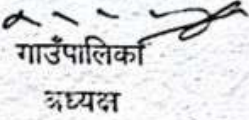 गाउँपालिका
अध्यक्ष